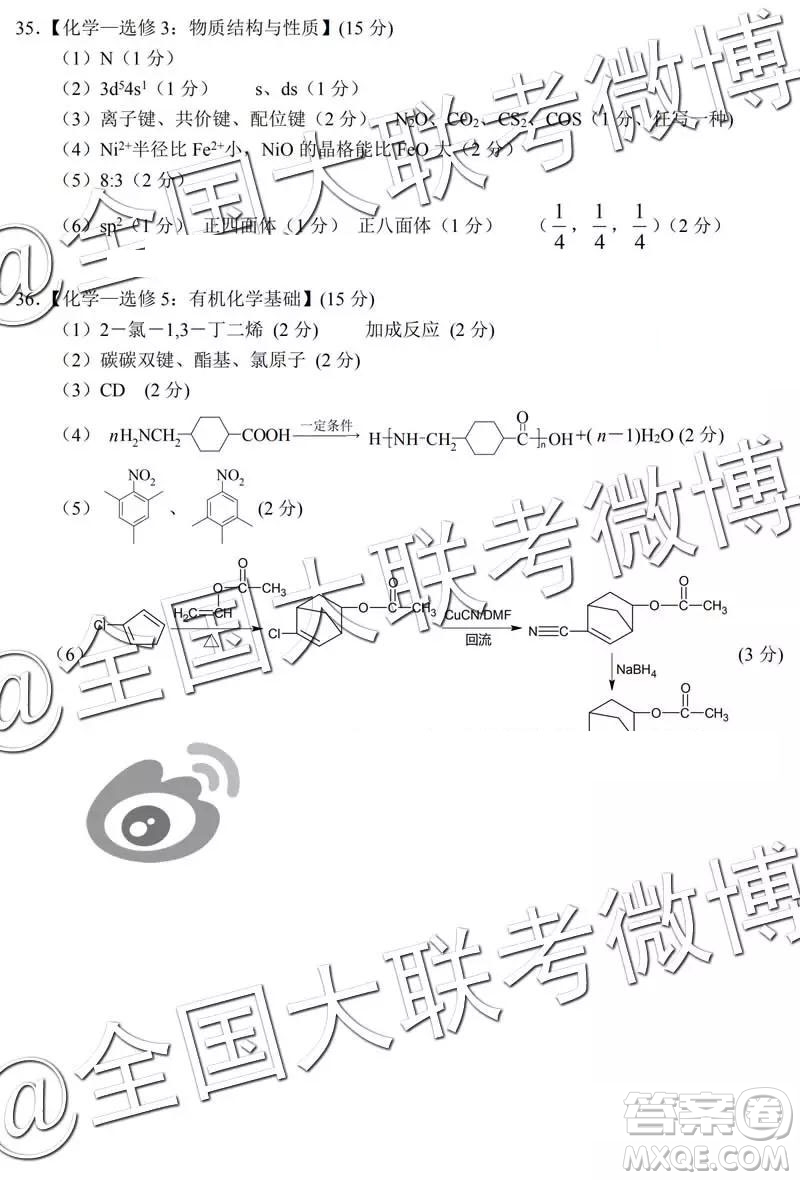 35.【化学—选修 3：物质结构与性质】(15 分)
（1）N（1 分）
（2）3d⁵4s¹（1 分） s、ds（1 分）
（3）离子键、共价键、配位键（2 分） N₂O、CO₂、CS₂、COS（1 分、任写一种)
（4）Ni²⁺半径比 Fe²⁺小，NiO 的晶格能比 FeO 大（2 分）
（5）8:3（2 分）
（6）sp²（1 分） 正四面体（1 分） 正八面体（1 分） （1/4，1/4，1/4）（2 分）
36.【化学—选修 5：有机化学基础】(15 分)
（1）2－氯－1,3－丁二烯 (2 分) 加成反应（2 分）
（2）碳碳双键、酯基、氯原子 (2 分)
（3）CD (2 分)
（4） nH₂NCH₂ COOH 一定条件 H [NH CH₂ C O ]n OH +( n－1)H₂O (2 分)
（5） NO₂ 、 NO₂ (2 分)
（6） Cl H₂C CH O O CH₃ △ Cl O O CH₃ CuCN/DMF 回流 N O O CH₃ (3 分)
NaBH₄
O O CH₃
@全国大联考微博
@全国大联考微博
答案卷
MXQE.COM